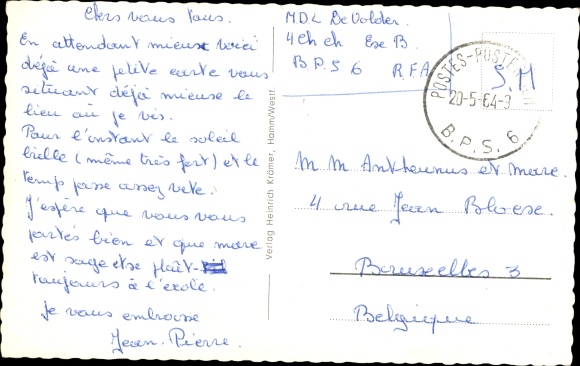 Chers vous tous.
En attendant mieux voici
déjà une petite carte vous
situant déjà mieuse le
lieu où je vis.
Pour l'instant le soleil
brille (même très fort) et le
temp passe assez vite.
J'espère que vous vous
portés bien et que marc
est sage et se plait
toujours à l'école.
Je vous embrasse
Jean-Pierre.
Verlag Heinrich Krämer, Hamm/Westf.
MDL De Volder.
4 Ch ch Esc B.
B P S 6 R.F.A
S.M
POSTES-POSTERIJEN
20-5-64-9
B.P.S. 6
M M Antheunus et Marc.
4 rue Jean Bloese.
Bruxelles 3
Belgique